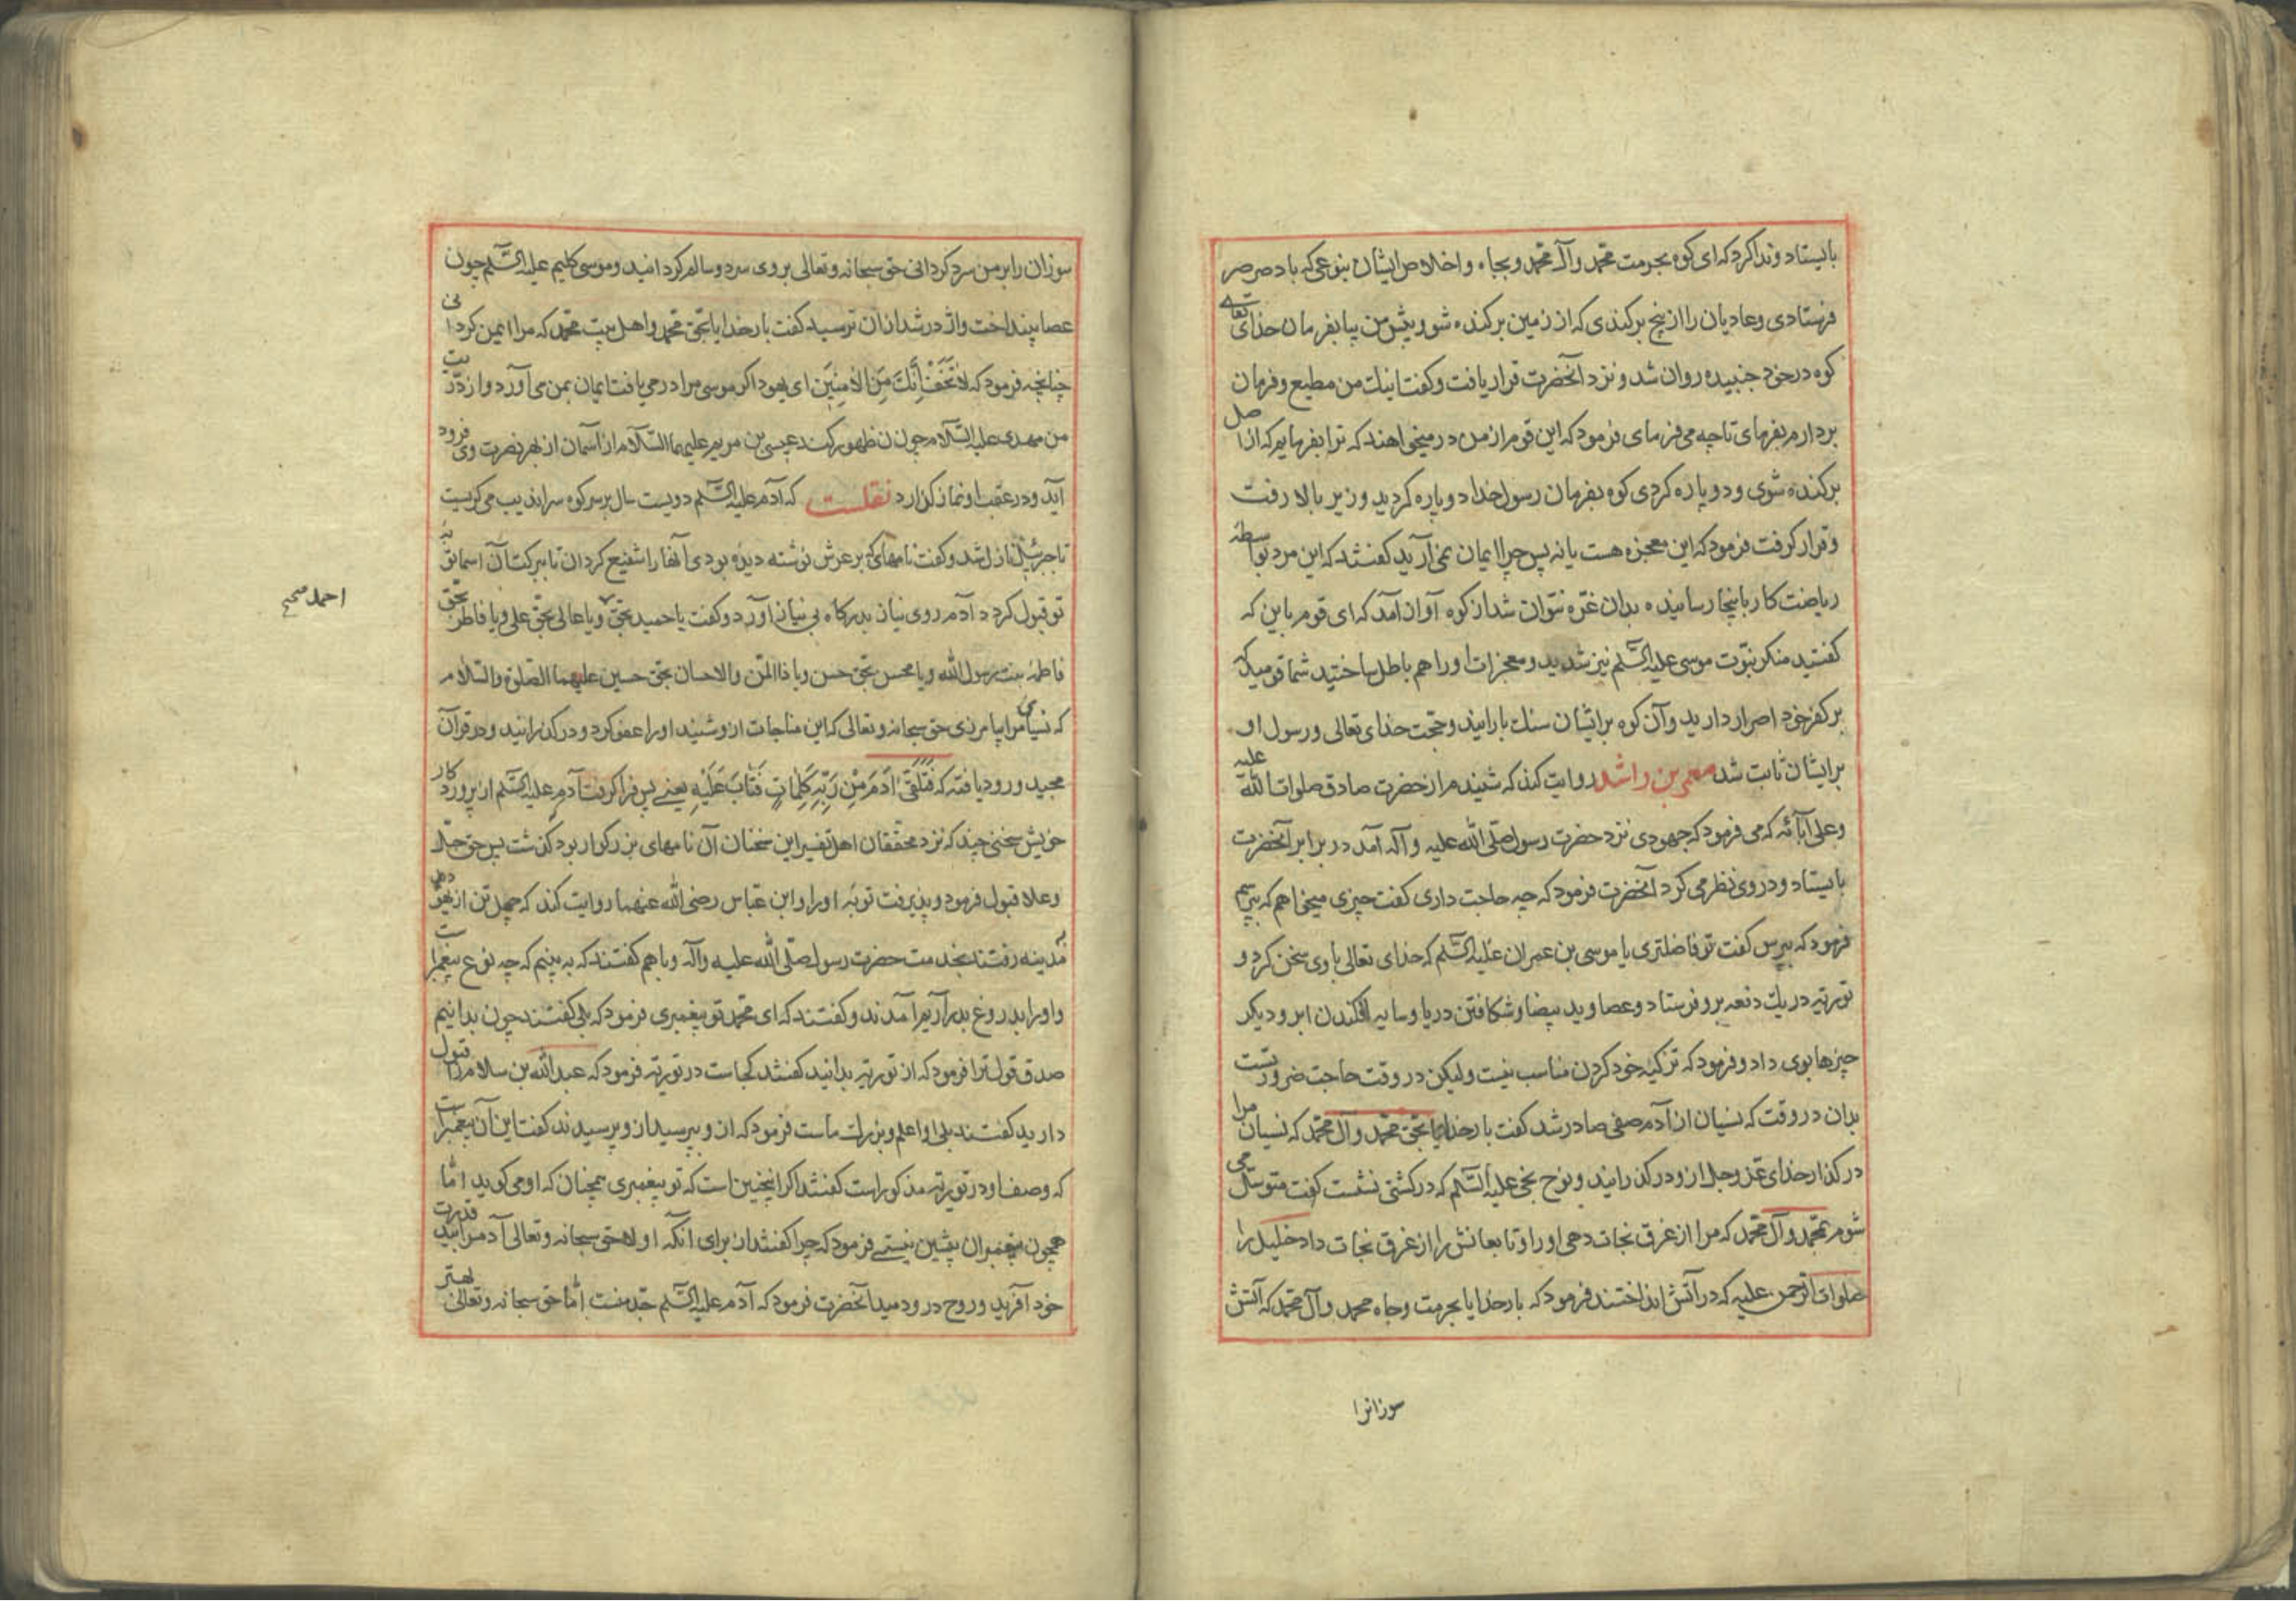 بایستاد و ندا کرد که ای کوه بحرمت محمد و آل محمد و بجاه و اخلاص ایشان بنوعی که باد صرصر
فرستادی و عادیان را از بیخ برکندی که از زمین برکنده شو و پیش من بیا بفرمان خدای تعالی
کوه در خود جنبیده روان شد و نزد آنحضرت قرار یافت و گفت اینک من مطیع و فرمان
بردارم بفرمای تا چه می فرمای فرمود که این قوم از من در میخواهند که ترا بفرمایم که از اصل
برکنده شوی و دو پاره کردی کوه بفرمان رسول خدا دو پاره کردید و زیر بالا رفت
و قرار کرفت فرمود که این معجزه هست یا نه پس چرا ایمان نمی آرید کفتند که این مرد بواسطه
ریاضت کار باینجا رسانیده بدان غره نتوان شد از کوه آواز آمد که ای قوم باین که
کفتید منکر نبوت موسی علیه السلم نیز شدید و معجزات او را هم باطل ساختید شما قومید که
بر کفر خود اصرار دارید و آن کوه بر ایشان سنک بارانید و حجت خدای تعالی و رسول او
بر ایشان ثابت شد معمر بن راشد روایت کند که شنیدم از حضرت صادق صلوات الله علیه
و علی آبائه که می فرمود که جهودی نزد حضرت رسول صلی الله علیه و آله آمد در برابر آنحضرت
بایستاد و در وی نظر می کرد آنحضرت فرمود که چه حاجت داری کفت چیزی میخواهم که بپرسم
فرمود که بپرس کفت تو فاضلتری یا موسی بن عمران علیه السلم که خدای تعالی با وی سخن کرد و
توریة در یک دفعه برو فرستاد و عصا و ید بیضا و شکافتن دریا و سایه افکندن ابر و دیکر
چیزها بوی داد و فرمود که تزکیه خود کردن مناسب نیست ولیکن در وقت حاجت ضرورتست
بدان در وقت که نسیان از آدم صفی صادر شد کفت بار خدایا بحق محمد و آل محمد که نسیان مرا
در کذار خدای عز و جل ازو در کذرانید و نوح نجی علیه السلم که در کشتی نشست کفت متوسل می
شوم بمحمد و آل محمد که مرا از غرق نجات دهی او را و تابعانش را از غرق نجات داد خلیل را
صلوات الرحمن علیه که در آتش انداختند فرمود که بار خدایا بحرمت و جاه محمد و آل محمد که آتش
سوزانرا
سوزان را بر من سرد کردانی حق سبحانه و تعالی بر وی سرد و سالم کردانید و موسی کلیم علیه السلم چون
عصا بینداخت و اژدر شد از آن ترسید کفت بار خدایا بحق محمد و اهل بیت محمد که مرا ایمن کردانی
چنانچه فرمود که لا تخف انک من الآمنین ای یهود اکر موسی مرا در می یافت ایمان بمن می آورد و از ذریت
من مهدی علیه السلام چون ظهور کند عیسی بن مریم علیهما السلام از آسمان از بهر نصرت وی فرود
آید و در عقب او نماز کزارد نقلست که آدم علیه السلم دویست سال بر سر کوه سراندیب می کریست
تا جبرئیل نازل شد و کفت نامهای که بر عرش نوشته دیده بودی آنها را شفیع کردان تا ببرکت آن اسما توبه
تو قبول کردد آدم روی نیاز بدرکاه بی نیاز آورد و کفت یا حمید بحق و یا عالی بحق علی و یا فاطر بحق
احمد صحیح
فاطمه بنت رسول الله و یا محسن بحق حسن و یا ذا المن و الاحسان بحق حسین علیهما الصلوة والسلام
که نسیان مرا بیامرزی حق سبحانه و تعالی که این مناجات ازو شنید او را عفو کرد و در کذرانید و در قرآن
مجید ورود یافته که فَتَلَقّٰی اٰدَمُ مِنْ رَبِّهِ کَلِمَاتٍ فَتَابَ عَلَیْهِ یعنی پس فرا کرفت آدم علیه السلم از پروردکار
خویش سخنی چند که نزد محققان اهل تفسیر این سخنان آن نامهای بزرکوار بود کذشت پس حق جل
و علا قبول فرمود و پذیرفت توبه او را و ابن عباس رضی الله عنهما روایت کند که چهل تن از یهود
مدینه رفتند بخدمت حضرت رسول صلی الله علیه و آله و با هم کفتند که به بینیم که چه نوع پیغمبر است
و او را بدروغ بدر آریم آمدند و کفتند که ای محمد تو پیغمبری فرمود که بلی کفتند چون بدانیم
صدق قول ترا فرمود که از توریة بدانید کفتند کجاست در توریة فرمود که عبد الله بن سلام را قبول
دارید کفتند بلی او اعلم و بزرک ماست فرمود که ازو بپرسید ازو پرسیدند کفت این آن پیغمبر است
که وصف او در توریة مذکور است کفتند اکر اینچنین است که تو پیغمبری همچنان که او می کوید اما
همچون پیغمبران پیشین نیستی فرمود که چرا کفتند از برای آنکه اولا حق سبحانه و تعالی آدم را بید قدرت
خود آفرید و روح در و دمید آنحضرت فرمود که آدم علیه السلم جد منست اما حق سبحانه و تعالی بهتر